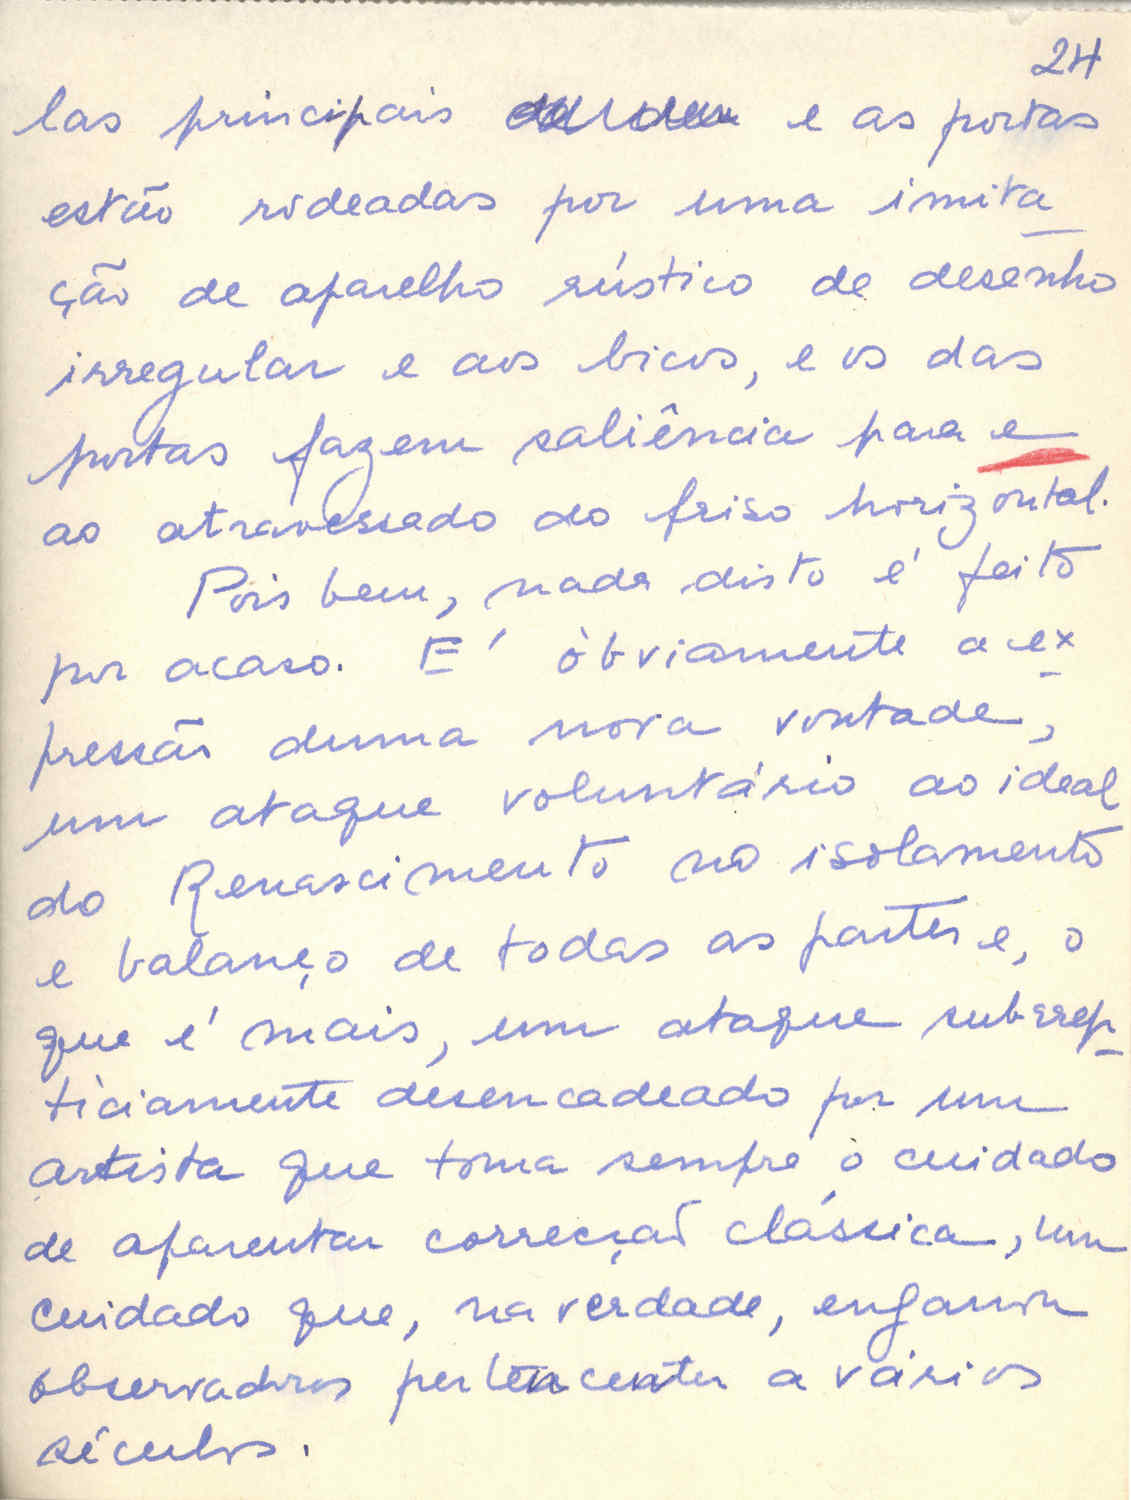 24
las principais e as portas
estão rodeadas por uma imita
ção de aparelho rústico de desenho
irregular e aos bicos, e os das
portas fazem saliência para e
ao atravessado do friso horizontal.
Pois bem, nada disto é feito
por acaso. E' òbviamente a ex
pressão duma nova vontade,
um ataque voluntário ao ideal
do Renascimento no isolamento
e balanço de todas as partes e, o
que é mais, um ataque subrrep-
tìciamente desencadeado por um
artista que toma sempre o cuidado
de aparentar correcção clássica, um
cuidado que, na verdade, enganou
observadores pertencentes a vários
séculos.